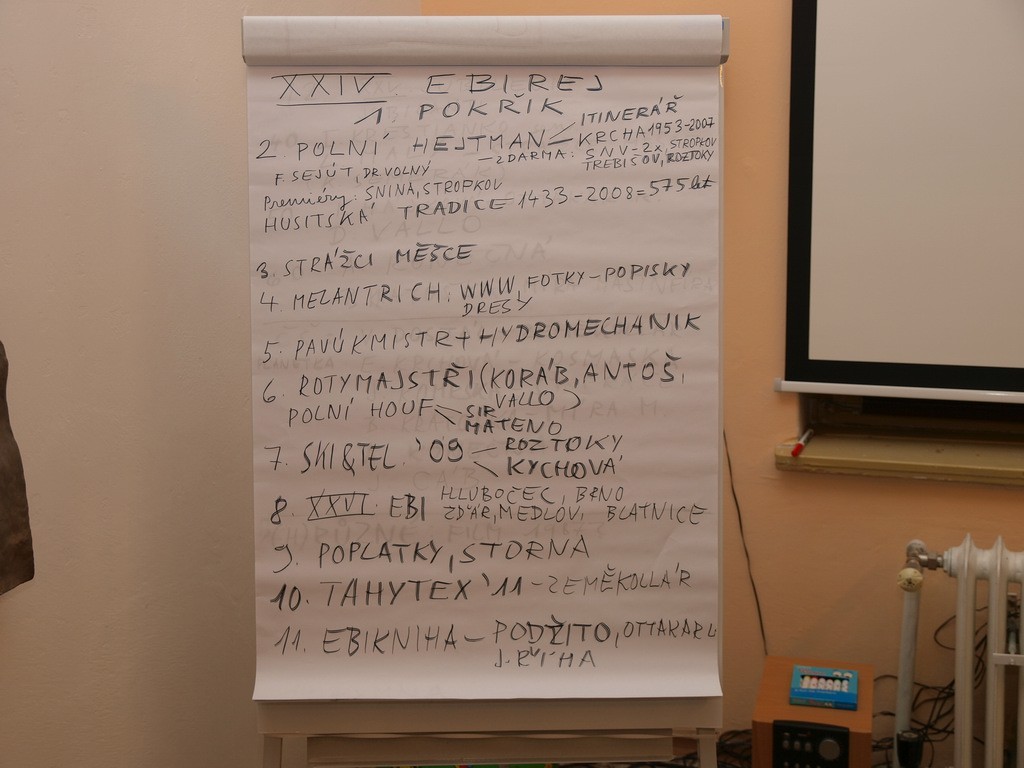 XXIV. EBIREJ
1 POKŘIK
2. POLNÍ HEJTMAN - ITINERÁŘ
- KRCHA 1953-2007
- ZDARMA: SNV-2x, STROPKOV
TREBIŠOV, ROZTOKY
F. SEJÚT, DR. VOLNÝ
Premiéry: SNINA, STROPKOV
HUSITSKÁ TRADICE 1433-2008=575 let
3. STRÁŽCI MĚŠCE
4. MELANTRICH: WWW, FOTKY-POPISKY
DRESY
5. PAVÚKMISTR + HYDROMECHANIK
6. ROTYMAJSTŘI (KORÁB, ANTOŠ,
VALLO)
POLNÍ HOUF - SIR
MATENO
7. SKI&TEL '09 - ROZTOKY
KYCHOVÁ
8. XXVI. EBI HLUBOČEC, BRNO
ZDÁR, MEDLOV, BLATNICE
9. POPLATKY, STORNA
10. TAHYTEX '11 - ZEMĚKOLLÁR
11. EBIKNIHA - PODŽITO, OTTAKAR
J. ŘÍHA